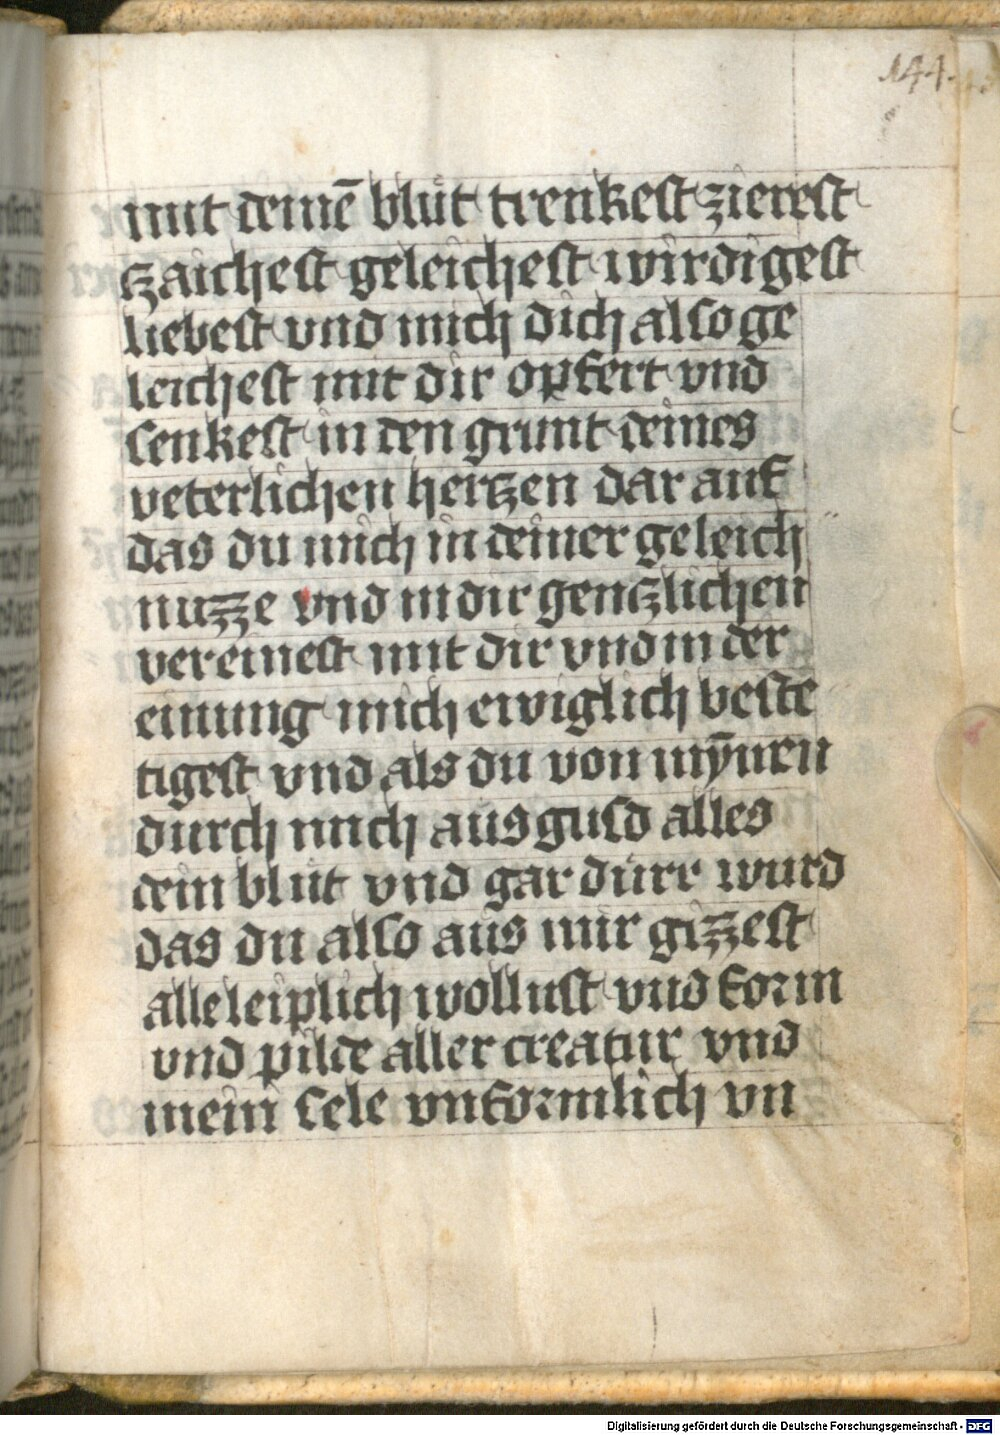 144.
mit deinē blut trenkest zierest
tzaichest geleichest wirdigest
liebest vnd mich dich also ge
leichest mit dir opfert vnd
senkest in den grunt deines
veterlichen hertzen dar auf
das du mich in deiner geleich
nuzze vnd in dir gentzlichen
vereinest mit dir vnd in der
einung mich ewiglich veste
tigest vnd als du von mȳnen
durch mich aus gusd alles
dein blut vnd gar dürr wurd
das du also aus mir gizzest
alle leiplich wollust vnd form
vnd pilde aller creatur vnd
mein sele vnformlich vn
Digitalisierung gefördert durch die Deutsche Forschungsgemeinschaft - DFG